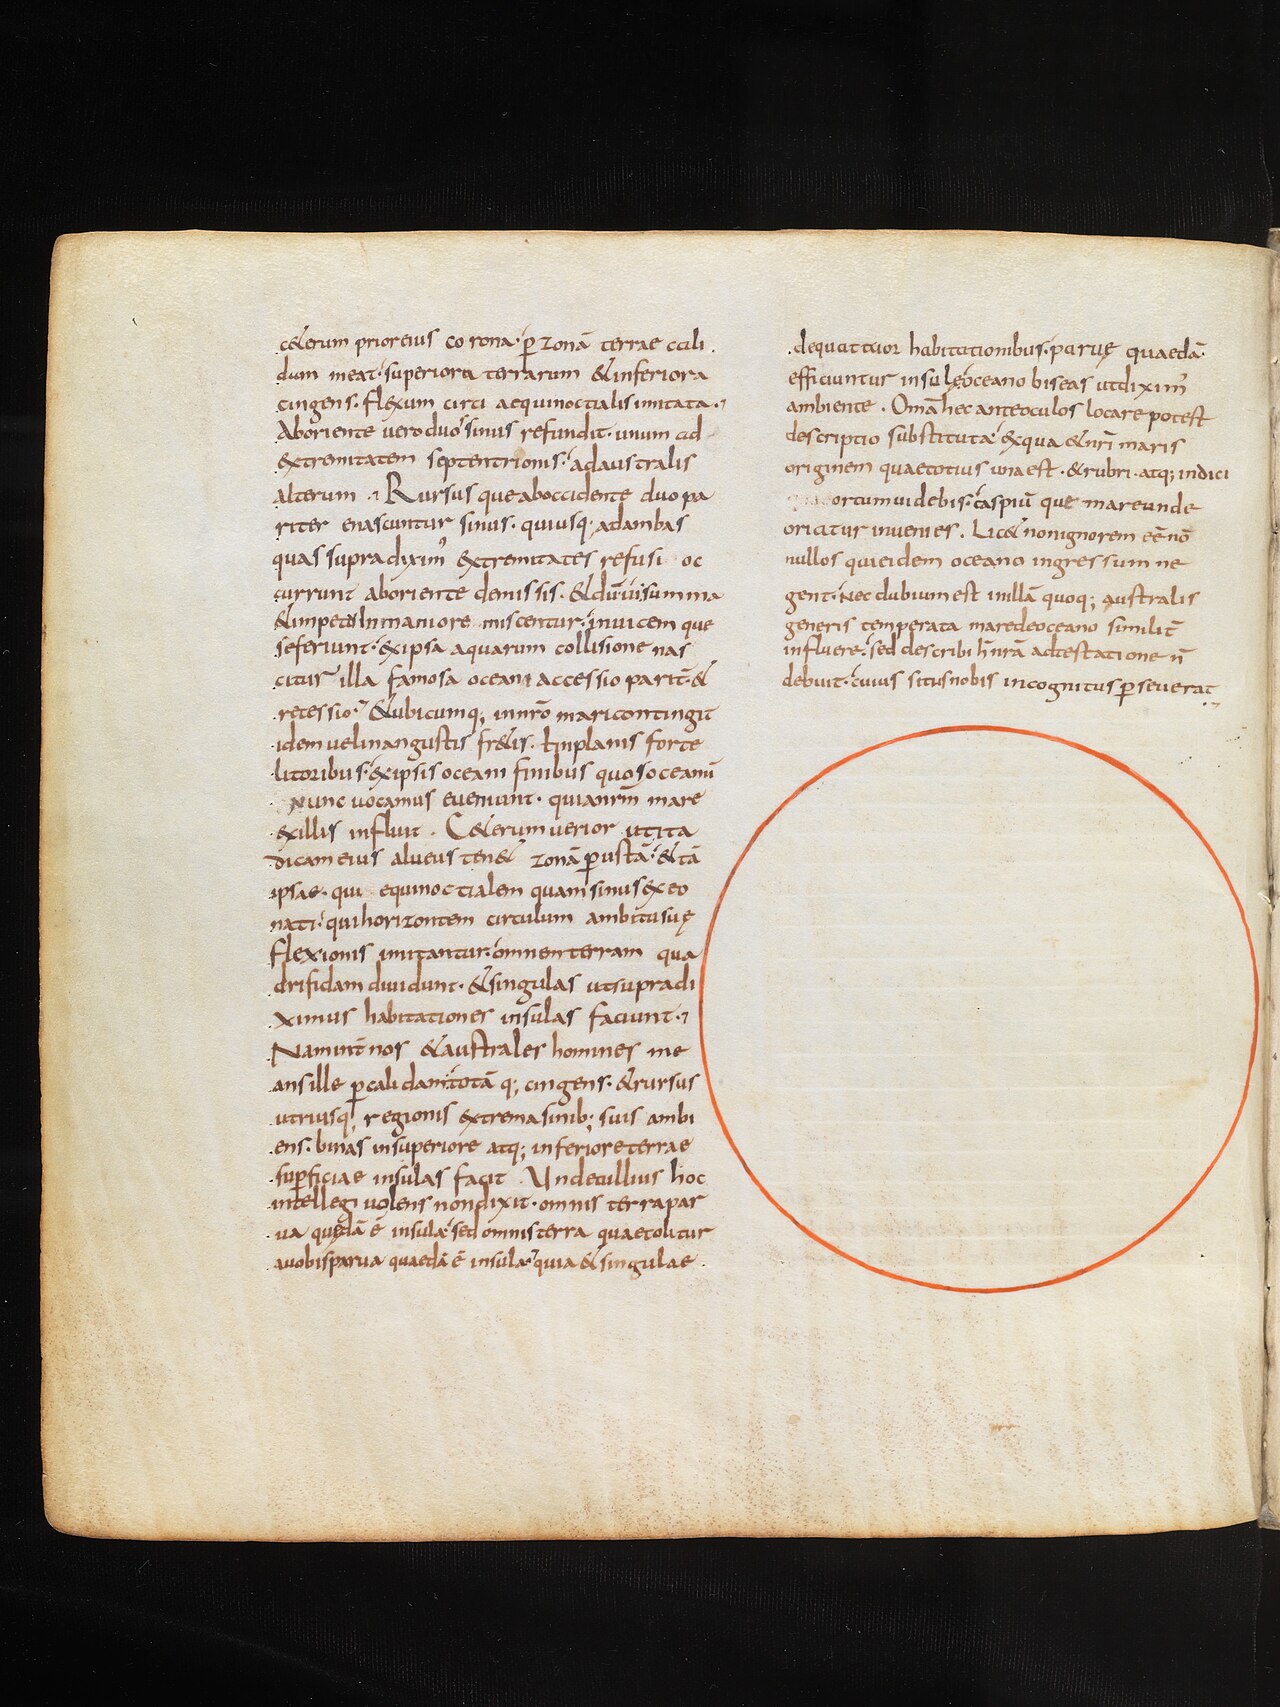 c&erum prioreius co rona· p̄ zonā terrae cali
dam meat· superiora terrarum & inferiora
cingens· flexum circi aequinoctialis imitata·
Aboriente vero duo sinus refundit· unum ad
extremitatem septentrionis· adaustralis
alterum · Rursus que aboccidente duo pa
riter enascuntur sinus· quiusq; adambas
quas supradixim' extremitates refusi oc
currunt aboriente demissis· & dū ui summa
& impetu inmaniore miscentur· inuicem que
seferiunt· exipsa aquarum collisione nas
citur illa famosa oceani accessio parit̄ &
recessio· & ubicumq; innrō mari contingit
idem uelinangustis fr&is· ł inplanis forte
litoribus· exipsis oceani finibus quos oceanū
nunc uocamus eueniunt· quianrm̄ mare
exillis influit · C&erum uerior ut ita
dicam eius alueus ten& zonā p̄ustā· & tā
ipsae· qui equinoctialem quam sinus exeo
nati· qui horizontem circulum ambitu suę
flexionis imitantur· omnem terram qua
drifidam diuidunt· & singulas utsupradi
ximus habitationes insulas faciunt·
Nam int̄ nos & australes homines me
ans ille p̄ calidam· totā q; cingens· & rursus
utriusq; regionis extrema sinib; suis ambi
ens· binas insuperiore atq; inferiore terrae
sup̄ficiae insulas facit · Unde tullius hoc
intellegi uolens nondixit· omnis terra par
ua quędā ē insula· sed omnis terra quae colitur
auobis parua quaedā ē insula· quia & singulae
de quattuor habitationibus· paruę quaedā·
efficiuntur insulę oceano biseas utdixim'
ambiente · Omā hec anteoculos locare potest
descriptio substituta· exqua & nrī maris
originem quae totius una est · & rubri · atq; indici
ortum uidebis· caspiū que mare unde
oriatur inuenies. Lic& nonignorem eē nō
nullos quieidem oceano ingressum ne
gent· Nec dubium est inillā quoq; australis
generis temperata mare deoceano similit̄
influere· sed describi h̄ nrā adtestatione n̄
debuit· cuius situs nobis incognitus p̄seuerat